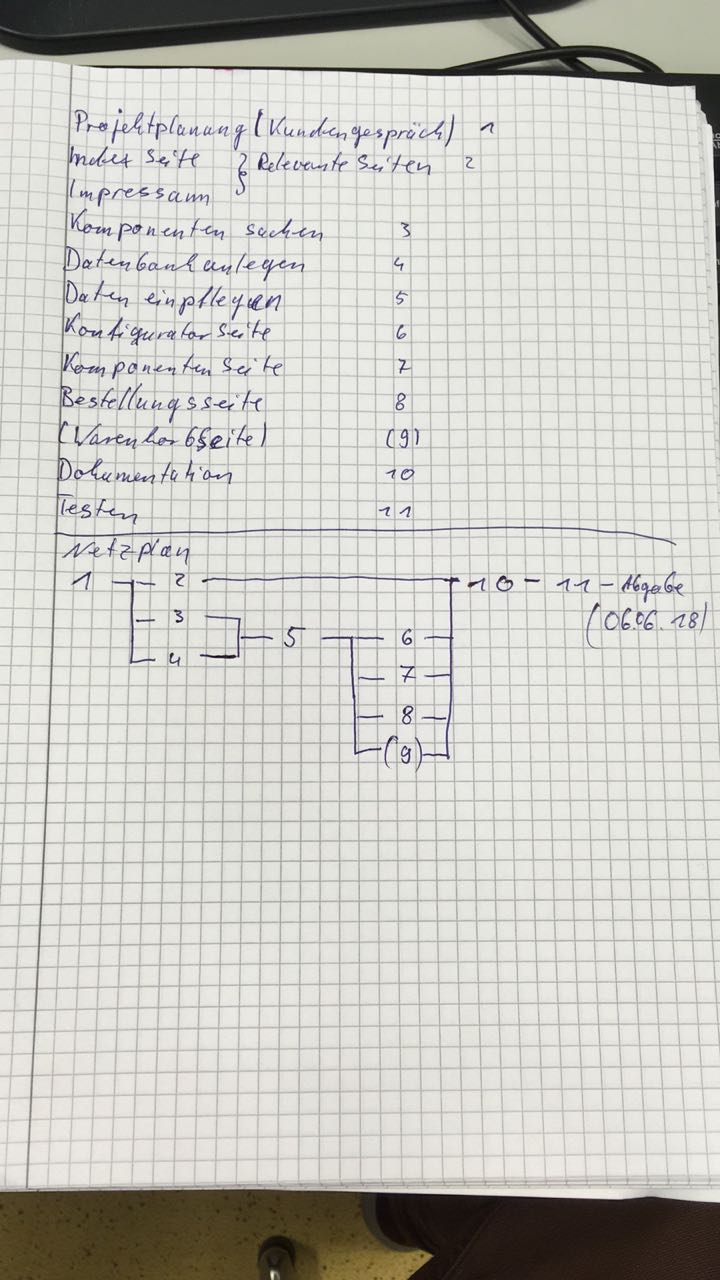 Projektplanung (Kundengespräch) 1
Index Seite } Relevante Seiten 2
Impressum
Komponenten suchen 3
Datenbank anlegen 4
Daten einpflegen 5
Konfigurator Seite 6
Komponenten Seite 7
Bestellungsseite 8
(Warenkorbseite) (9)
Dokumentation 10
Testen 11
Netzplan
1 2 10 - 11 - Abgabe
3 (06.06.18)
5 6
4
7
8
(9)